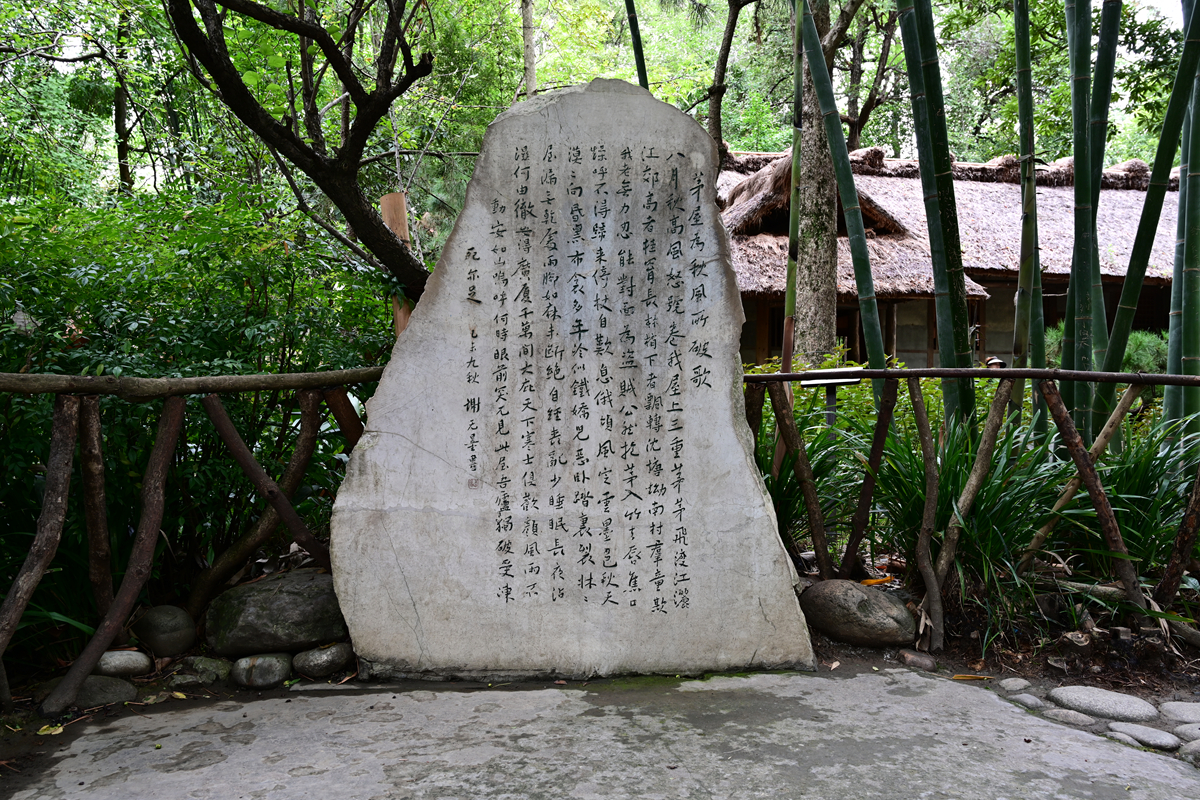 茅屋為秋風所破歌
八月秋高風怒號卷我屋上三重茅茅飛渡江灑
江郊高者挂罥長林梢下者飄轉沈塘坳南村羣童欺
我老無力忍能對面為盜賊公然抱茅入竹去唇焦口
燥呼不得歸來倚杖自歎息俄頃風定雲墨色秋天
漠〻向昏黑布衾多年冷似鐵嬌兒惡卧踏裏裂牀〻
屋漏無乾處雨腳如麻未斷絕自經喪亂少睡眠長夜沾
濕何由徹安得廣廈千萬間大庇天下寒士俱歡顏風雨不
動安如山嗚呼何時眼前突兀見此屋吾廬獨破受凍
死亦足 乙未九秋 謝无量書